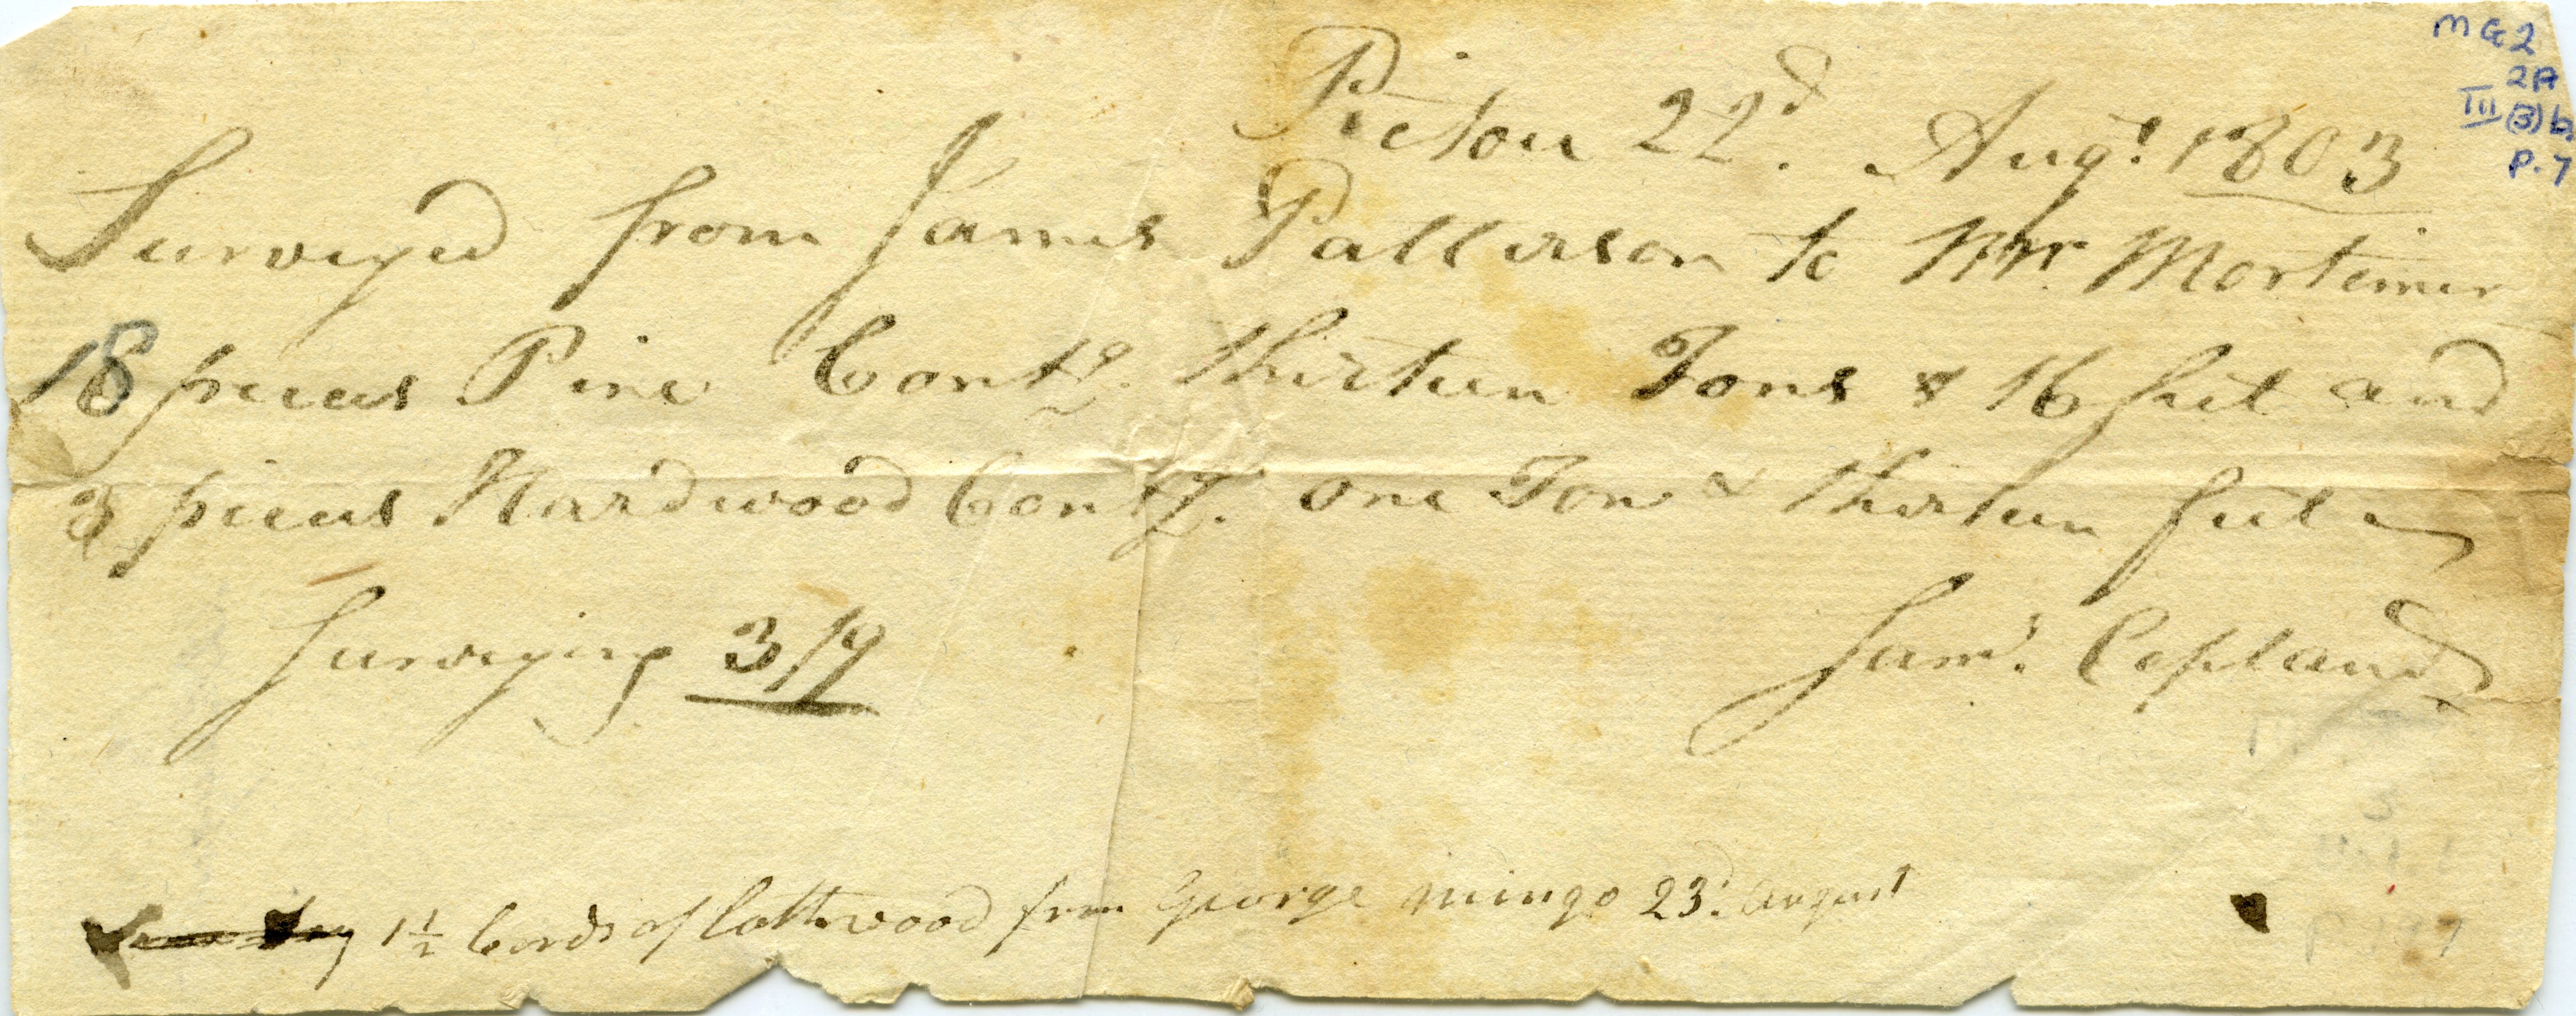 MG2
2A
III (3) b
P.7
Pictou 22d. Augt. 1803
Surveyed from James Patterson to Mr Mortimer
18 pieces Pine Contg. thirteen Tons & 16 feet and
3 pieces Hardwood Contg. one Ton & thirteen feet
Surveying 3/9
Saml. Copland
1½ Cords of lathwood from George mingo 23d. august